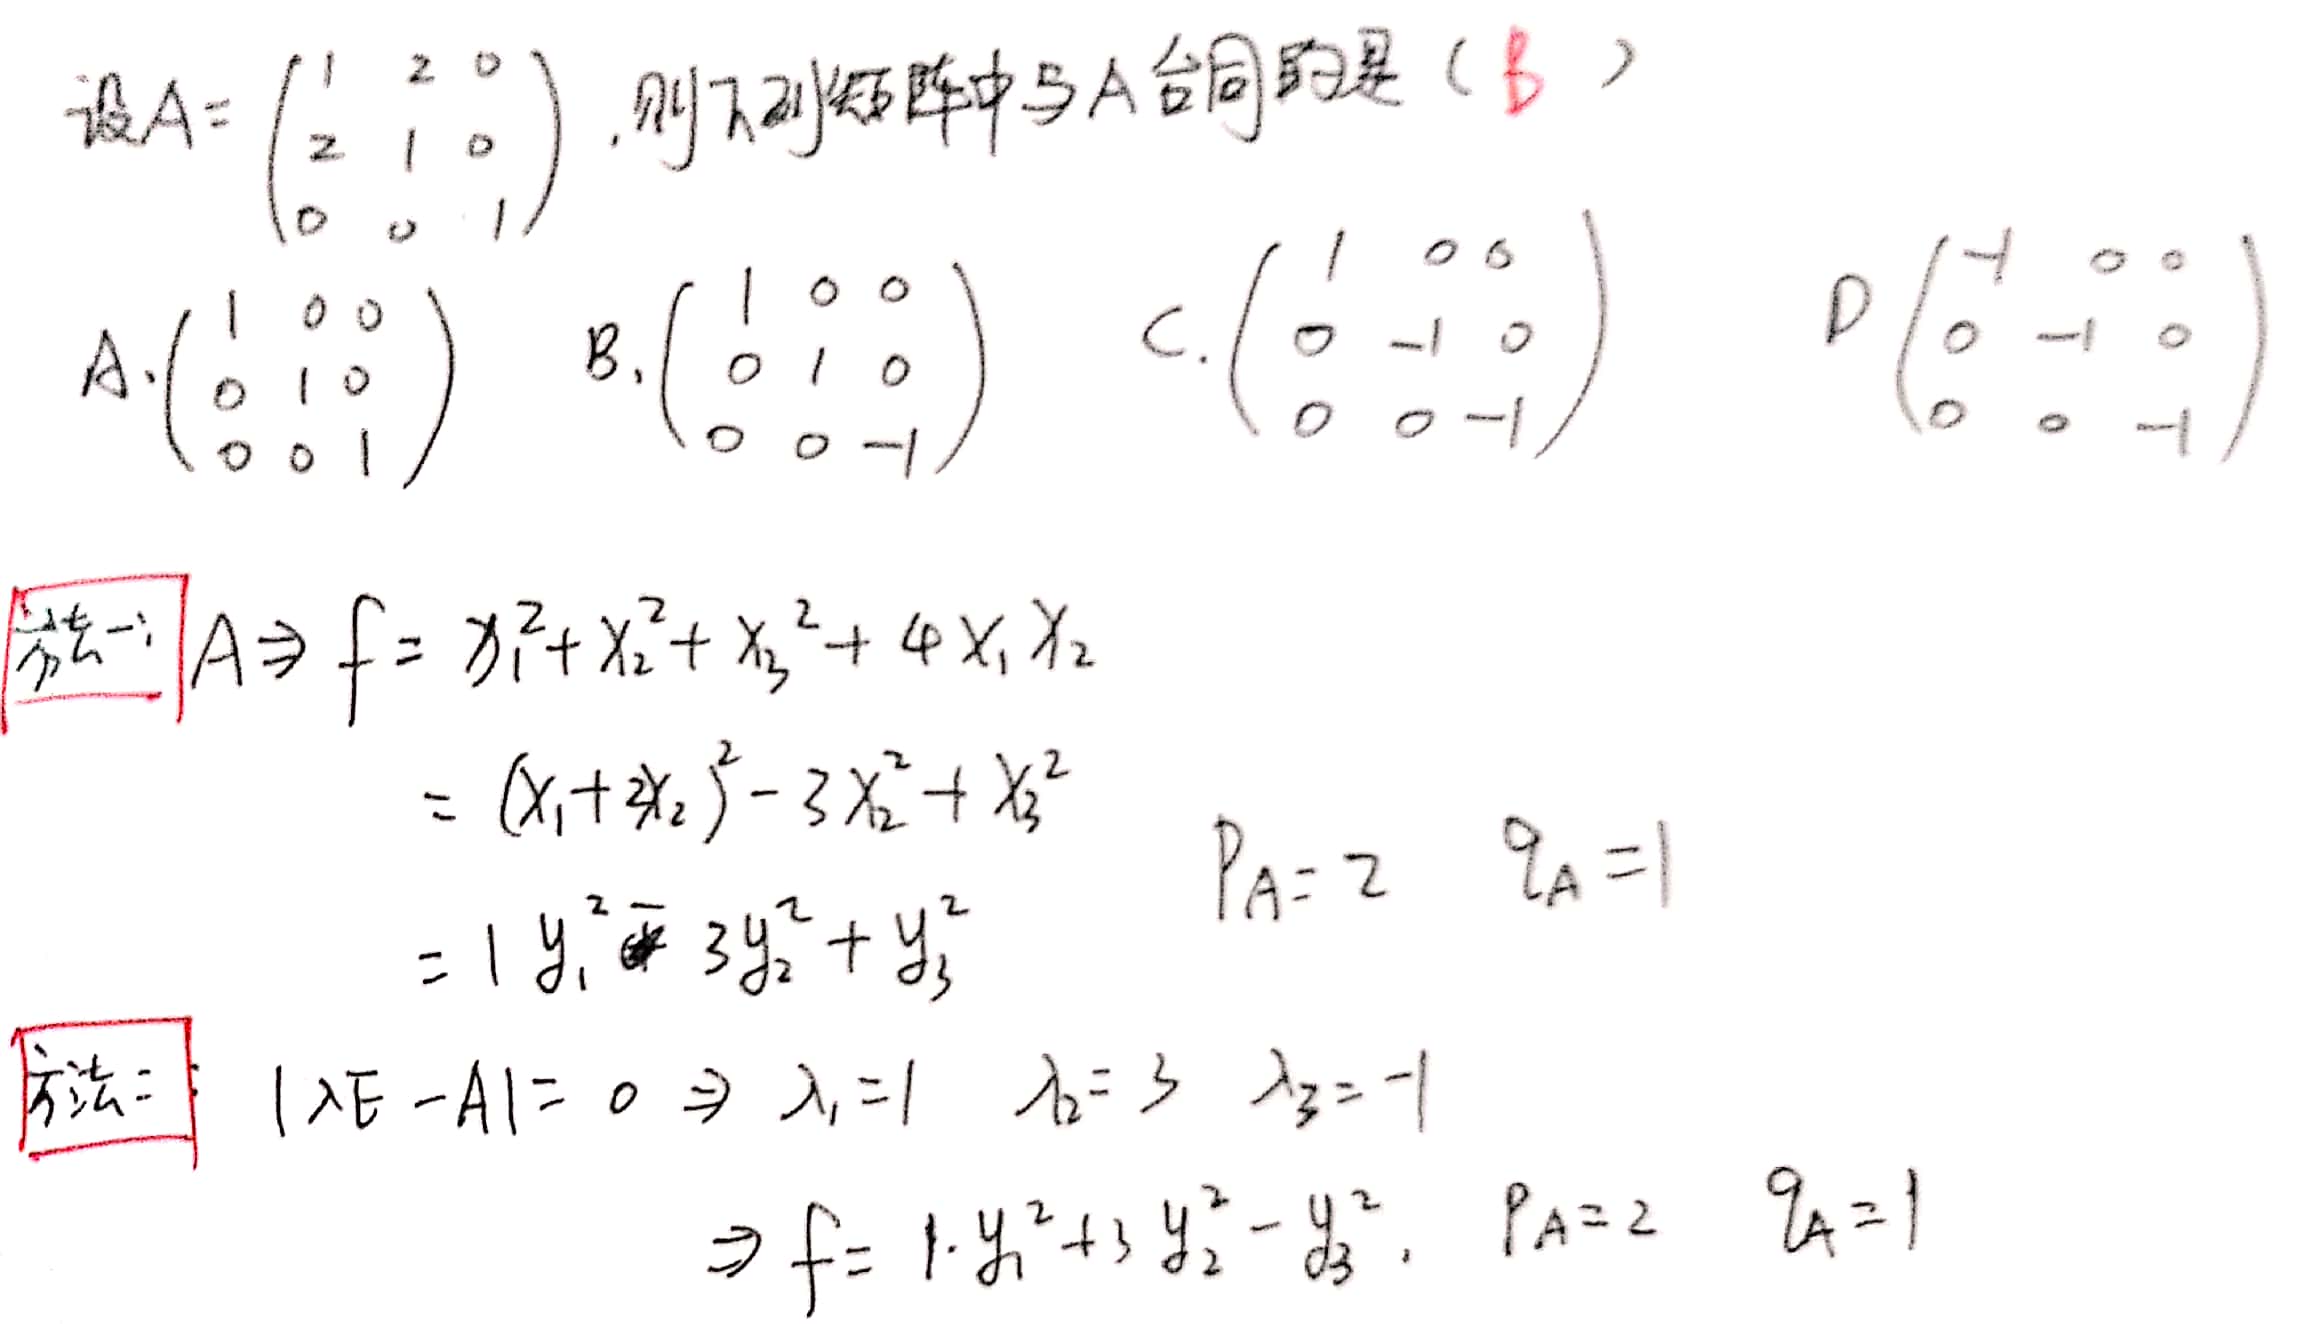 设A=(1 2 0
2 1 0
0 0 1),则下列矩阵中与A合同的是(B)
A.(1 0 0
0 1 0
0 0 1) B.(1 0 0
0 1 0
0 0 -1) C.(1 0 0
0 -1 0
0 0 -1) D(-1 0 0
0 -1 0
0 0 -1)
方法一: A⇒ f= x₁²+x₂²+x₃²+4x₁x₂
= (x₁+2x₂)²-3x₂²+x₃²
P_A=2 q_A=1
=1y₁²-3y₂²+y₃²
方法二: |λE-A|=0 ⇒ λ₁=1 λ₂=3 λ₃=-1
⇒ f= 1·y₁²+3y₂²-y₃². P_A=2 q_A=1